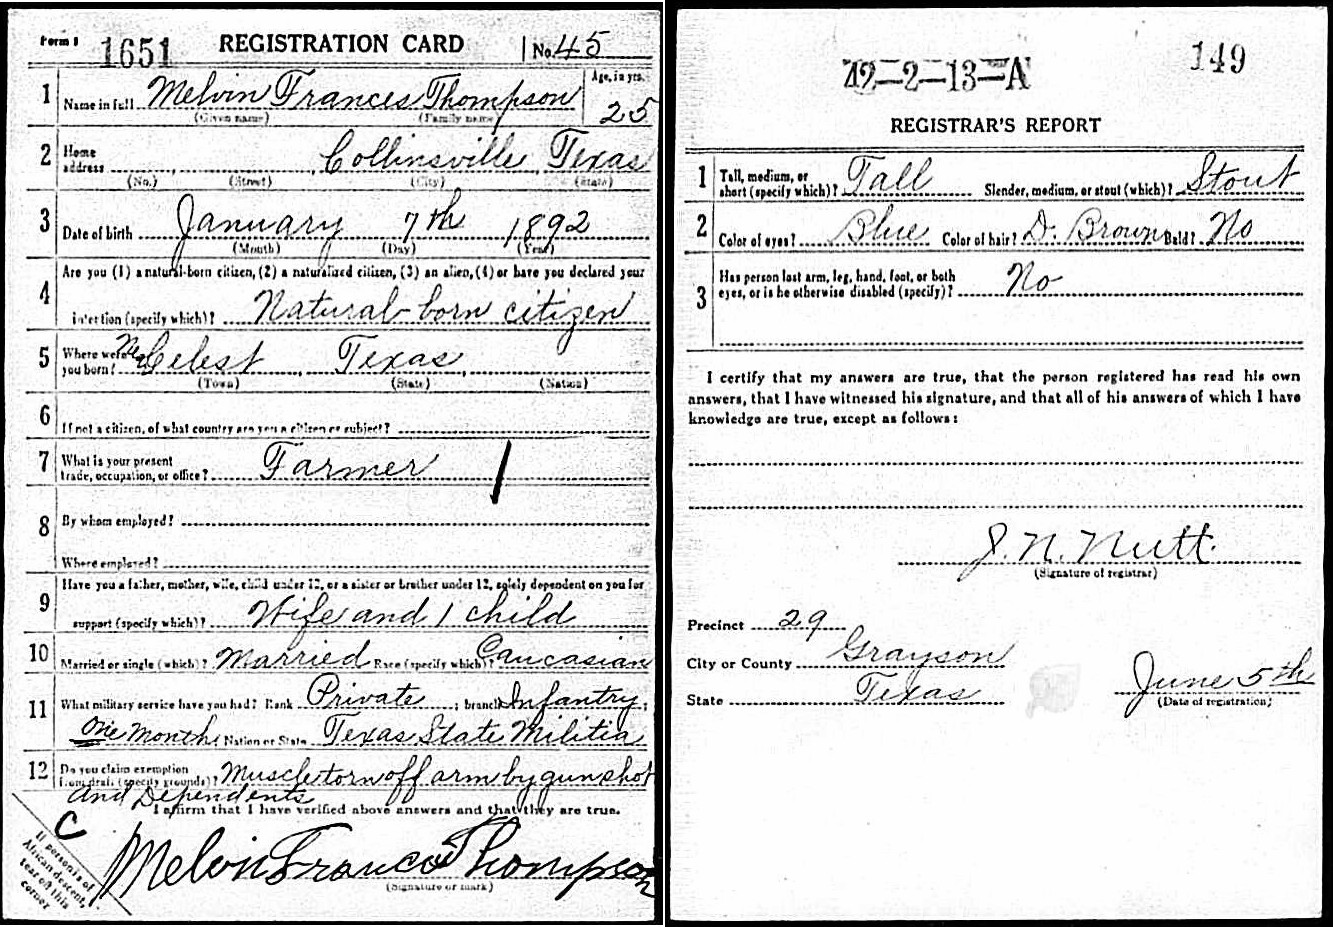 Form 1 1651 REGISTRATION CARD No. 45
1 Name in full Melvin Frances Thompson Age, in yrs. 25
(Given name) (Family name)
2 Home address Collinsville, Texas
(No.) (Street) (City) (State)
3 Date of birth January 7th 1892
(Month) (Day) (Year)
4 Are you (1) a natural-born citizen, (2) a naturalized citizen, (3) an alien, (4) or have you declared your
intention (specify which)? Natural-born citizen
5 Where were you born? Celest, Texas,
(Town) (State) (Nation)
6 If not a citizen, of what country are you a citizen or subject?
7 What is your present trade, occupation, or office? Farmer
8 By whom employed?
Where employed?
9 Have you a father, mother, wife, child under 12, or a sister or brother under 12, solely dependent on you for
support (specify which)? Wife and 1 child
10 Married or single (which)? Married Race (specify which)? Caucasian
11 What military service have you had? Rank Private; branch Infantry;
One month; Nation or State Texas State Militia
12 Do you claim exemption from draft (specify grounds)? Muscle torn off arm by gun shot
and Dependents
I affirm that I have verified above answers and that they are true.
C
Melvin Frances Thompson
(Signature or mark)
If person is of
African descent,
tear off this
corner
42-2-13-A 149
REGISTRAR'S REPORT
1 Tall, medium, or short (specify which)? Tall Slender, medium, or stout (which)? Stout
2 Color of eyes? Blue Color of hair? D. Brown Bald? No
3 Has person lost arm, leg, hand, foot, or both
eyes, or is he otherwise disabled (specify)? No
I certify that my answers are true, that the person registered has read his own
answers, that I have witnessed his signature, and that all of his answers of which I have
knowledge are true, except as follows:
J. N. Nutt.
(Signature of registrar)
Precinct 29
City or County Grayson
State Texas
June 5th
(Date of registration)